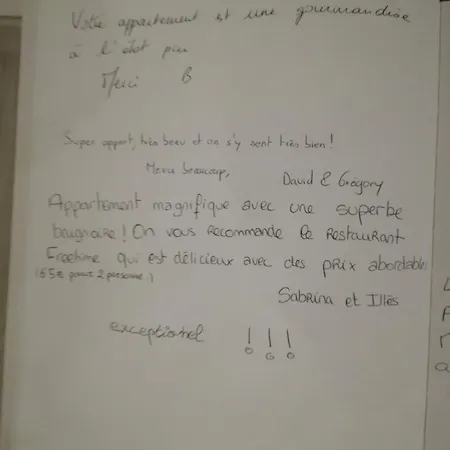 Votre appartement est une gourmandise
à l'état pur
Merci B
Super appart, très beau et on s'y sent très bien !
Merci beaucoup,
David & Grégory
Appartement magnifique avec une superbe
baignoire ! On vous recommande le restaurant
qui est délicieux avec des prix abordables
(65€ pour 2 personne.)
Sabrina et Illès
exceptionnel !!!